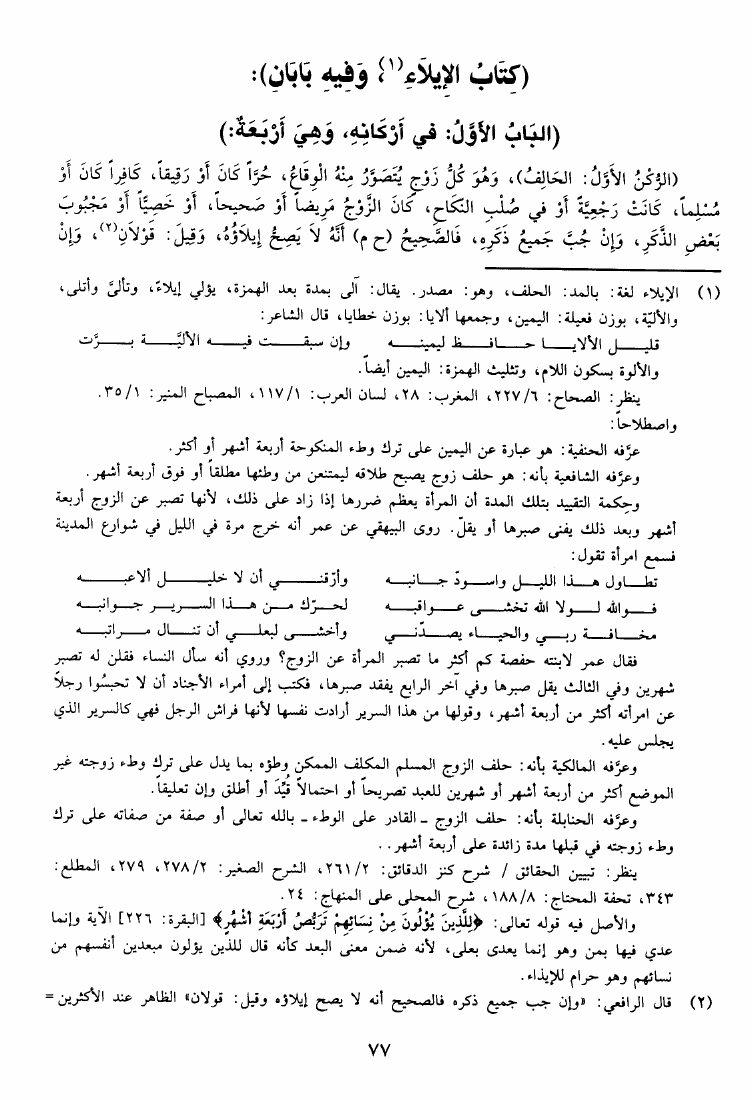 (كِتَابُ الإِيلاَءِ(١)، وَفِيهِ بَابَانِ):
(البَابُ الأَوَّلُ: في أَرْكَانِهِ، وَهِيَ أَرْبَعَةٌ:)
(الرُّكْنُ الأَوَّلُ: الحَالِفُ)، وَهُوَ كُلُّ زَوْجٍ يُتَصَوَّرُ مِنْهُ الْوِقَاعُ، حُرَّاً كَانَ أَوْ رَقِيقاً، كَافِراً كَانَ أَوْ
مُسْلِماً، كَانَتْ رَجْعِيَّةً أَوْ في صُلْبِ النِّكَاحِ، كَانَ الزَّوْجُ مَرِيضاً أَوْ صَحِيحاً، أَوْ خَصِيَّاً أَوْ مَجْبُوبَ
بَعْضِ الذَّكَرِ، وَإِنْ جُبَّ جَمِيعُ ذَكَرِهِ، فَالصَّحِيحُ (ح م) أَنَّهُ لاَ يَصِحُّ إِيلاَؤُهُ، وَقِيلَ: قَوْلاَنِ(٢)، وَإِنْ
(١) الإيلاء لغة: بالمد: الحلف، وهو: مصدر. يقال: آلى بمدة بعد الهمزة، يؤلي إيلاءً، وتألىَّ وأتلى،
والأليّة، بوزن فعيلة: اليمين، وجمعها ألايا: بوزن خطايا، قال الشاعر:
قليل الألايا حافظ ليمينه وإن سبقت فيه الأليَّة برَّت
والألوة بسكون اللام، وتثليث الهمزة: اليمين أيضاً.
ينظر: الصحاح: ٢٢٧/٦، المغرب: ٢٨، لسان العرب: ١١٧/١، المصباح المنير: ٣٥/١.
واصطلاحاً:
عرَّفه الحنفية: هو عبارة عن اليمين على ترك وطء المنكوحة أربعة أشهر أو أكثر.
وعرَّفه الشافعية بأنه: هو حلف زوج يصبح طلاقه ليمتنعن من وطئها مطلقاً أو فوق أربعة أشهر.
وحِكمة التقييد بتلك المدة أن المرأة يعظم ضررها إذا زاد على ذلك، لأنها تصبر عن الزوج أربعة
أشهر وبعد ذلك يفنى صبرها أو يقلّ. روى البيهقي عن عمر أنه خرج مرة في الليل في شوارع المدينة
فسمع امرأة تقول:
تطاول هذا الليل واسودّ جانبه وأرّقني أن لا خليل ألاعبه
فوالله لولا الله تخشى عواقبه لحرّك من هذا السرير جوانبه
مخافة ربي والحياء يصدّني وأخشى لبعلي أن تنال مراتبه
فقال عمر لابنته حفصة كم أكثر ما تصبر المرأة عن الزوج؟ وروي أنه سأل النساء فقلن له تصبر
شهرين وفي الثالث يقل صبرها وفي آخر الرابع يفقد صبرها، فكتب إلى أمراء الأجناد أن لا تحبسُوا رجلاً
عن امرأته أكثر من أربعة أشهر، وقولها من هذا السرير أرادت نفسها لأنها فراش الرجل فهي كالسرير الذي
يجلس عليه.
وعرَّفه المالكية بأنه: حلف الزوج المسلم المكلف الممكن وطؤه بما يدل على ترك وطء زوجته غير
الموضع أكثر من أربعة أشهر أو شهرين للعبد تصريحاً أو احتمالاً قُيِّدَ أو أطلق وإن تعليقاً.
وعرَّفه الحنابلة بأنه: حلف الزوج ـ القادر على الوطء ـ بالله تعالى أو صفة من صفاته على ترك
وطء زوجته في قبلها مدة زائدة على أربعة أشهر..
ينظر: تبيين الحقائق / شرح كنز الدقائق: ٢٦١/٢، الشرح الصغير: ٢٧٨/٢، ٢٧٩، المطلع:
٣٤٣، تحفة المحتاج: ١٨٨/٨، شرح المحلى على المنهاج: ٢٤.
والأصل فيه قوله تعالى: ﴿لِلَّذِينَ يُؤْلُونَ مِنْ نِسَائِهِمْ تَرَبُّصُ أَرْبَعَةِ أَشْهُرٍ﴾ [البقرة: ٢٢٦] الآية وإنما
عدي فيها بمن وهو إنما يعدى بعلى، لأنه ضمن معنى البعد كأنه قال للذين يؤلون مبعدين أنفسهم من
نسائهم وهو حرام للإيذاء.
(٢) قال الرافعي: «وإن جب جميع ذكره فالصحيح أنه لا يصح إيلاؤه وقيل: قولان» الظاهر عند الأكثرين =
٧٧